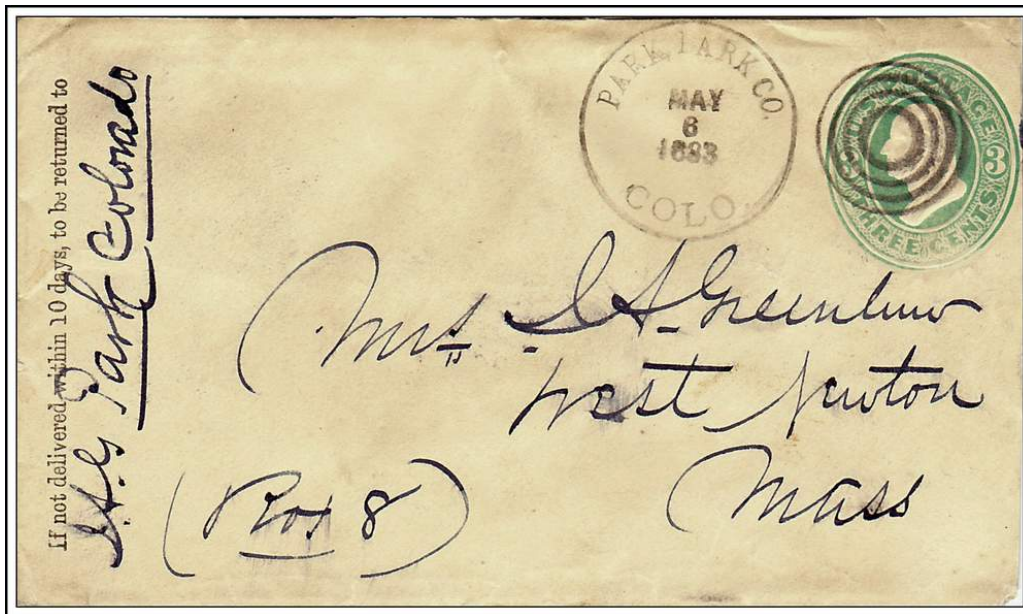 If not delivered within 10 days, to be returned to
Park Colorado
PARK, PARK CO.
MAY
6
1883
COLO.
U.S. POSTAGE
3 3
THREE CENTS
Mrs
West Newton
Mass
(Box 8)